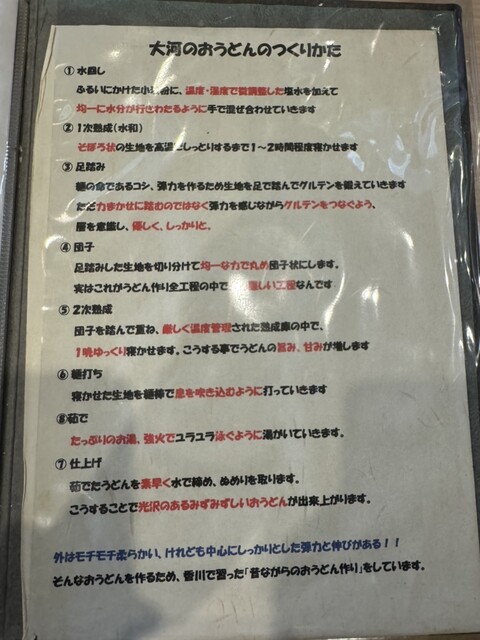 大河のおうどんのつくりかた
① 水回し
ふるいにかけた小麦粉に、温度・湿度で微調整した塩水を加えて
均一に水分が行きわたるように手で混ぜ合わせていきます
② 1次熟成(水和)
そぼろ状の生地を高温でしっとりするまで1〜2時間程度寝かせます
③ 足踏み
麺の命であるコシ、弾力を作るため生地を足で踏んでグルテンを鍛えていきます
ただ力まかせに踏むのではなく弾力を感じながらグルテンをつなぐよう、
層を意識し、優しく、しっかりと。
④ 団子
足踏みした生地を切り分けて均一な力で丸め団子状にします。
実はこれがうどん作り全工程の中で 難しい工程なんです
⑤ 2次熟成
団子を踏んで重ね、厳しく温度管理された熟成庫の中で、
1晩ゆっくり寝かせます。こうする事でうどんの旨み、甘みが増します
⑥ 麺打ち
寝かせた生地を麺棒で息を吹き込むように打っていきます
⑧茹で
たっぷりのお湯、強火でユラユラ泳ぐように湯がいていきます。
⑦ 仕上げ
茹でたうどんを素早く水で締め、ぬめりを取ります。
こうすることで光沢のあるみずみずしいおうどんが出来上がります。
外はモチモチ柔らかい、けれども中心にしっかりとした弾力と伸びがある!!
そんなおうどんを作るため、香川で習った「昔ながらのおうどん作り」をしています。